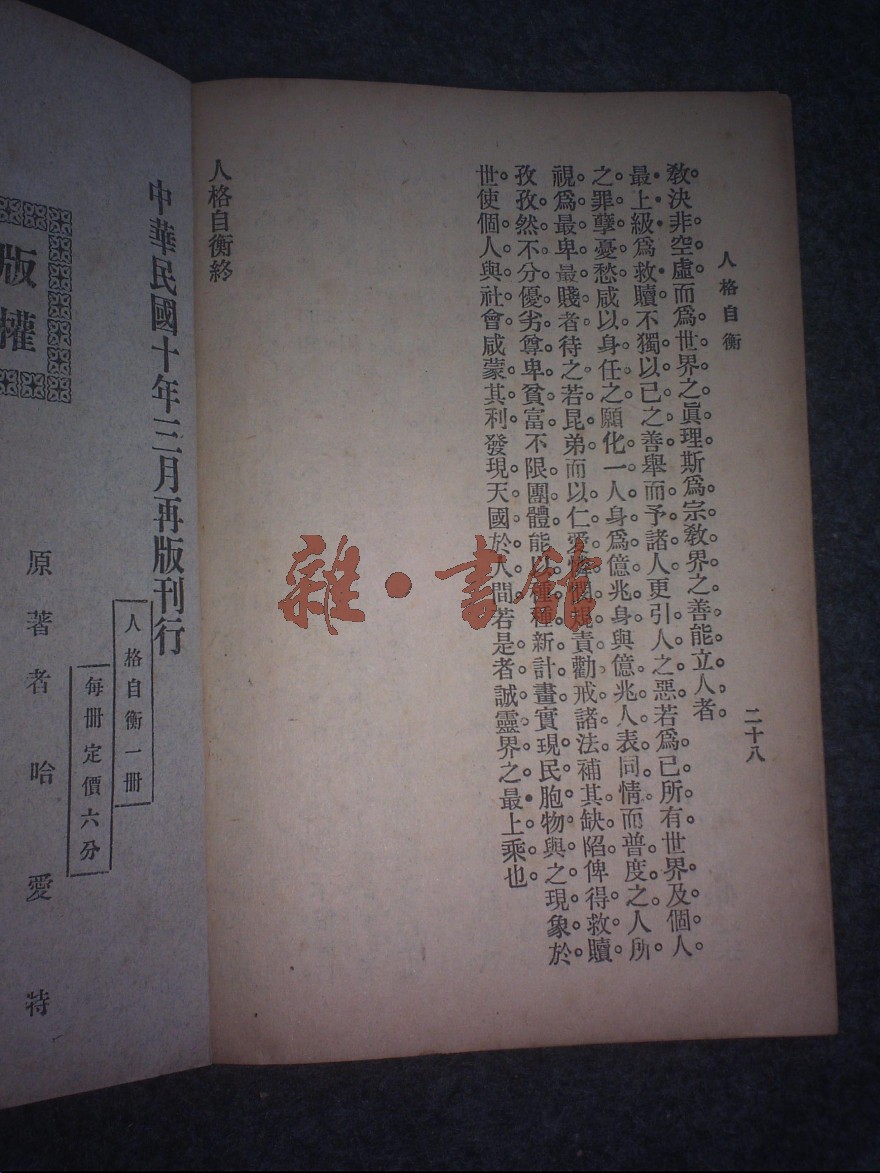 人格自衡
二十八
教決非空虛而爲世界之眞理斯爲宗教界之善能立人者。
最上級爲救贖不獨以己之善舉而予諸人更引人之惡若爲己所有世界及個人
之罪孽憂愁咸以身任之願化一人身爲億兆身與億兆人表同情而普度之人所
視爲最卑最賤者待之若昆弟而以仁愛憐憫規責勸戒諸法補其缺陷俾得救贖
孜孜然不分優劣尊卑貧富不限團體能以種種新計畫實現民胞物與之現象於
世使個人與社會咸蒙其利發現天國於人間若是者誠靈界之最上乘也
人格自衡終
中華民國十年三月再版刊行
人格自衡一冊
每冊定價六分
版權
原著者哈愛特
雜·書館